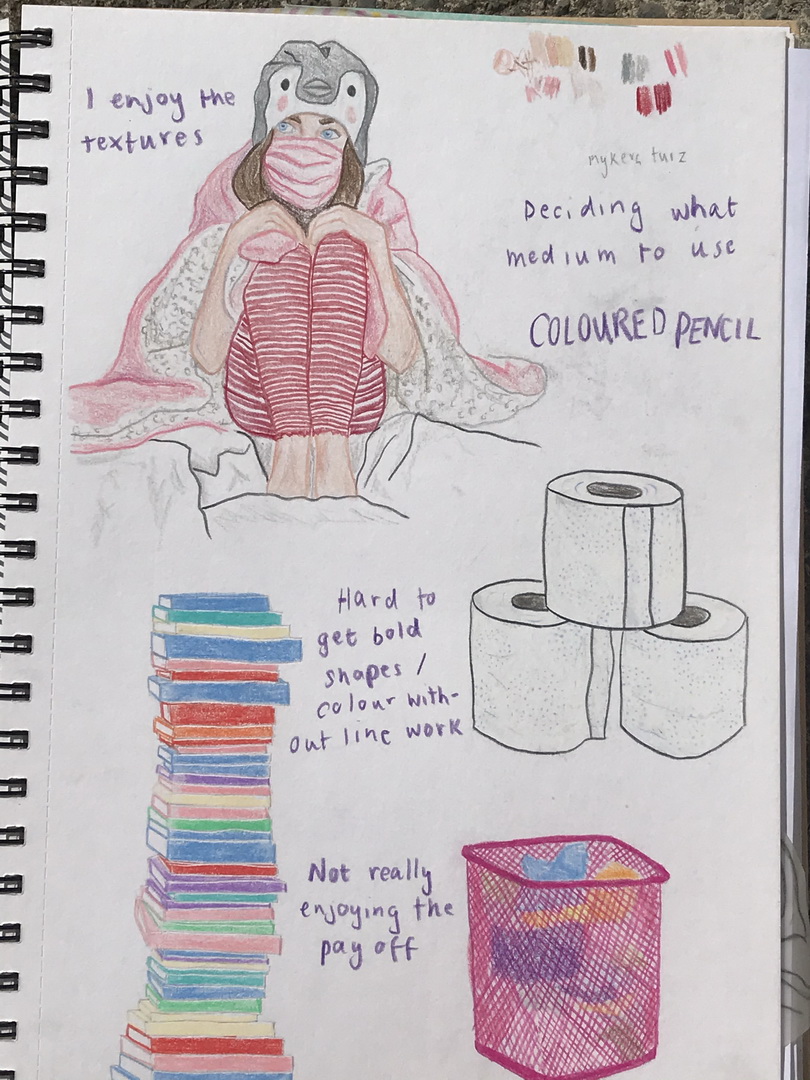 I enjoy the
textures
Deciding what
medium to use
COLOURED PENCIL
Hard to
get bold
shapes /
colour with-
out line work
Not really
enjoying the
pay off